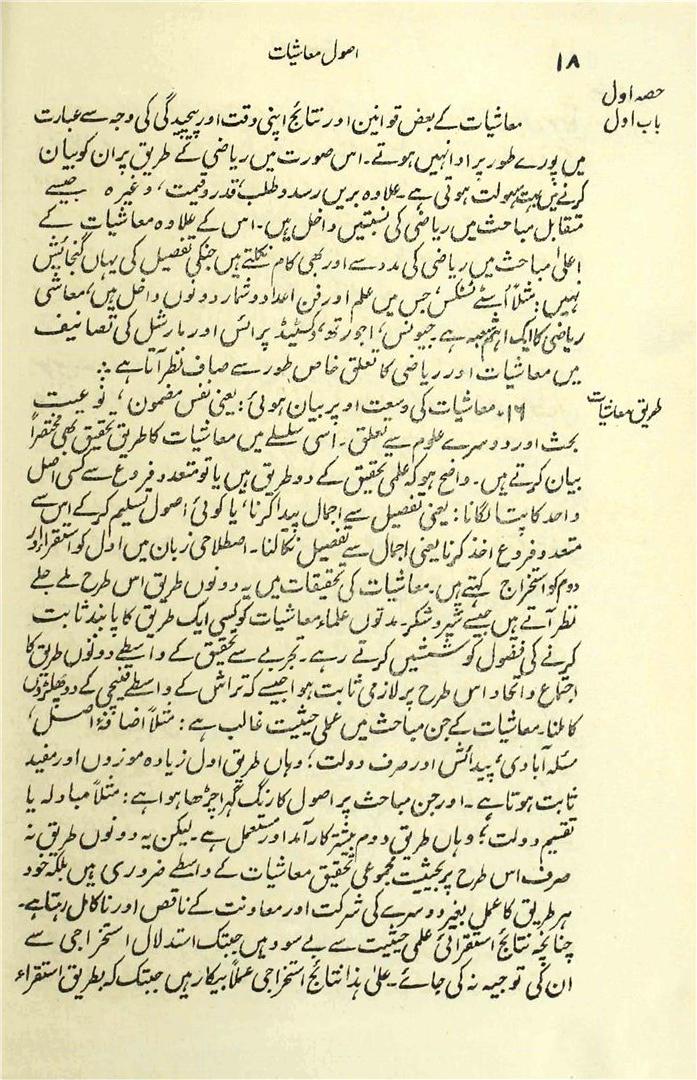 ۱۸
اصول معاشیات
حصہ اول
باب اول
معاشیات کے بعض قوانین اور نتائج اپنی وقت اور پیچیدگی کی وجہ سے عبارت
میں پورے طور پر ادا نہیں ہوتے۔ اس صورت میں ریاضی کے طریق پر ان کو بیان
کرنے میں بہت سہولت ہوتی ہے۔ علاوہ بریں رسد و طلب، قدر و قیمت، وغیرہ جیسے
متقابل مباحث میں ریاضی کی نسبتیں داخل ہیں۔ اس کے علاوہ معاشیات کے
اعلیٰ مباحث میں ریاضی کی مدد سے اور بھی کام نکلتے ہیں جنکی تفصیل کی یہاں گنجائش
نہیں: مثلاً اسٹے ٹسٹکس، جس میں علم اور فن اعداد و شمار دونوں داخل ہیں، معاشی
ریاضی کا ایک اہم شعبہ ہے جیونس، اجورتھ، وکسٹیڈ پرائس اور مارشل کی تصانیف
میں معاشیات اور ریاضی کا تعلق خاص طور سے صاف نظر آتا ہے ∴
طریق معاشیات
۱۶۔ معاشیات کی وسعت اوپر بیان ہوئی: یعنی نفس مضمون، نوعیت
بحث اور دوسرے علوم سے تعلق۔ اسی سلسلے میں معاشیات کا طریق تحقیق بھی مختصراً
بیان کرتے ہیں۔ واضح ہو کہ علمی تحقیق کے دو طریق ہیں یا تو متعدد فروع سے کسی اصل
واحد کا پتا لگانا: یعنی تفصیل سے اجمال پیدا کرنا، یا کوئی اصول تسلیم کر کے اس سے
متعدد فروع اخذ کرنا یعنی اجمال سے تفصیل نکالنا۔ اصطلاحی زبان میں اول کو استقرار اور
دوم کو استخراج کہتے ہیں۔ معاشیات کی تحقیقات میں یہ دونوں طریق اس طرح ملے جلے
نظر آتے ہیں جیسے شیر و شکر۔ مدتوں علماء معاشیات کو کسی ایک طریق کا پابند ثابت
کرنے کی فضول کوششیں کرتے رہے۔ تجربے سے تحقیق کے واسطے دونوں طریق کا
اجتماع و اتحاد اس طرح پر لازمی ثابت ہوا جیسے کہ تراش کے واسطے قینچی کے دو پھلڑوں
کا ملنا۔ معاشیات کے جن مباحث میں عملی حیثیت غالب ہے: مثلاً اضافۂ اصل،
مسئلہ آبادی، پیدائش اور صرف دولت؛ وہاں طریق اول زیادہ موزوں اور مفید
ثابت ہوتا ہے۔ اور جن مباحث پر اصول کا رنگ گہرا چڑھا ہوا ہے: مثلاً مبادلہ یا
تقسیم دولت؛ وہاں طریق دوم بیشتر کارآمد اور مستعمل ہے۔ لیکن یہ دونوں طریق نہ
صرف اس طرح پر بحیثیت مجموعی تحقیق معاشیات کے واسطے ضروری ہیں بلکہ خود
ہر طریق کا عمل بغیر دوسرے کی شرکت اور معاونت کے ناقص اور ناکامل رہتا ہے۔
چنانچہ نتائج استقرائی علمی حیثیت سے بے سود ہیں جبتک استدلال استخراجی سے
ان کی توجیہ نہ کی جائے۔ علیٰ ہذا نتائج استخراجی عملاً بیکار ہیں جبتک کہ بطریق استقراء